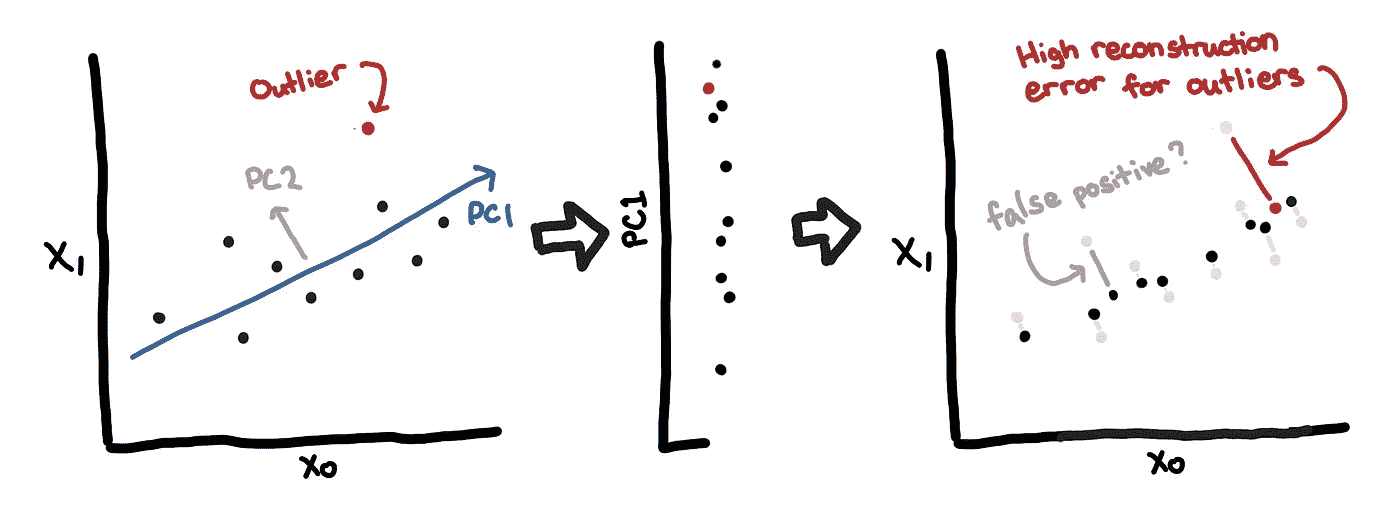 Outlier
PC2
PC1
X1
X0
PC1
High reconstruction
error for outliers
false positive?
X1
X0